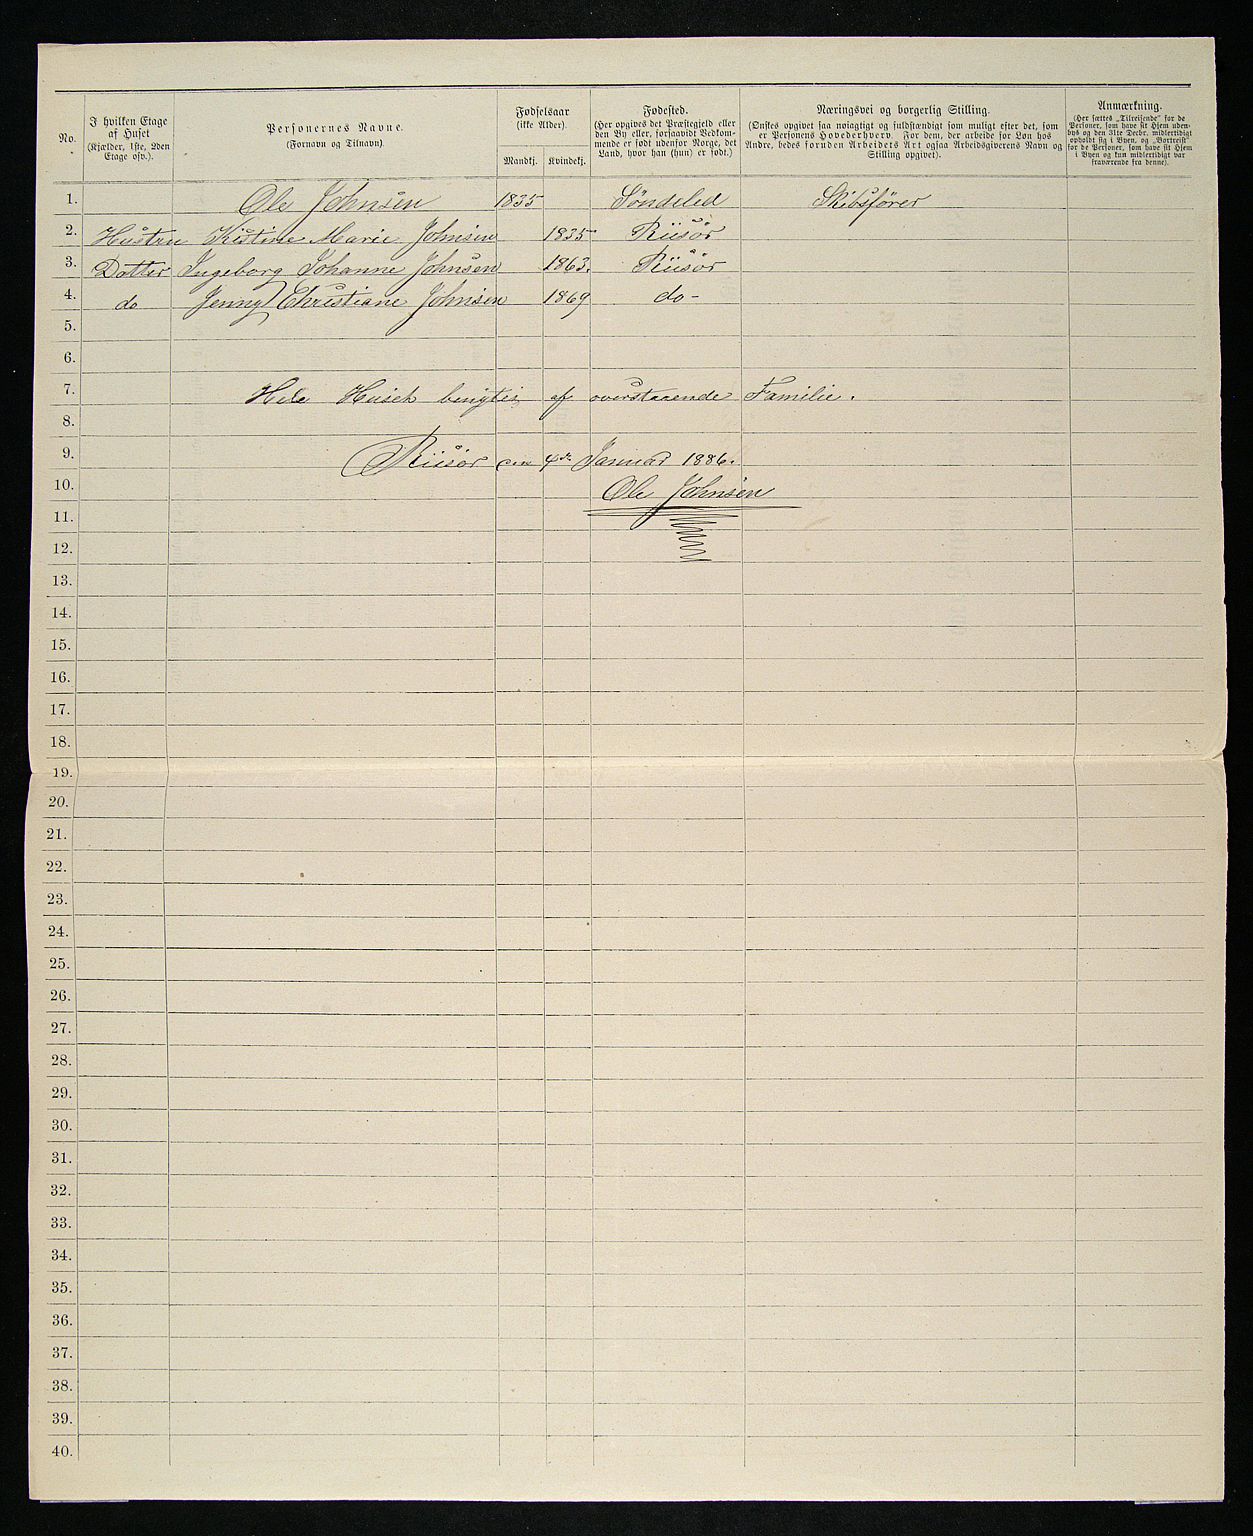 No.
I hvilken Etage
af Huset
(Kjælder, 1ste, 2den
Etage osv.).
Personernes Navne.
(Fornavn og Tilnavn).
Fødselsaar
(ikke Alder).
Mandkj.
Kvindekj.
Fødested.
(Her opgives det Præstegjeld eller
den By eller, forsaavidt Vedkom-
mende er født udenfor Norge, det
Land, hvor han (hun) er født.)
Næringsvei og borgerlig Stilling.
(Ønskes opgivet saa nøiagtigt og fuldstændigt som muligt efter det, som
er Personens Hovederhverv. For dem, der arbeide for Løn hos
Andre, bedes foruden Arbeidets Art ogsaa Arbeidsgiverens Navn og
Stilling opgivet).
Anmærkning.
(Her sættes „Tilreisende“ for de
Personer, som have sit Hjem uden-
bys og den 31te Decbr. midlertidigt
opholdt sig i Byen, og „Bortreist“
for de Personer, som have sit Hjem
i Byen og kun midlertidigt var
fraværende fra denne).
1. Ole Johnsen 1835 Söndeled Skibsfører
2. Hustru Kistine Marie Johnsen 1835 Riisör
3. Datter Ingeborg Johanne Johnsen 1863. Riisör
4. do Jenny Christiane Johnsen 1869 do-
5.
6.
7. Hele Huset af overstaaende Familie.
8.
9. Riisör den 4de Januar 1886.
10. Ole Johnsen
11.
12.
13.
14.
15.
16.
17.
18.
19.
20.
21.
22.
23.
24.
25.
26.
27.
28.
29.
30.
31.
32.
33.
34.
35.
36.
37.
38.
39.
40.